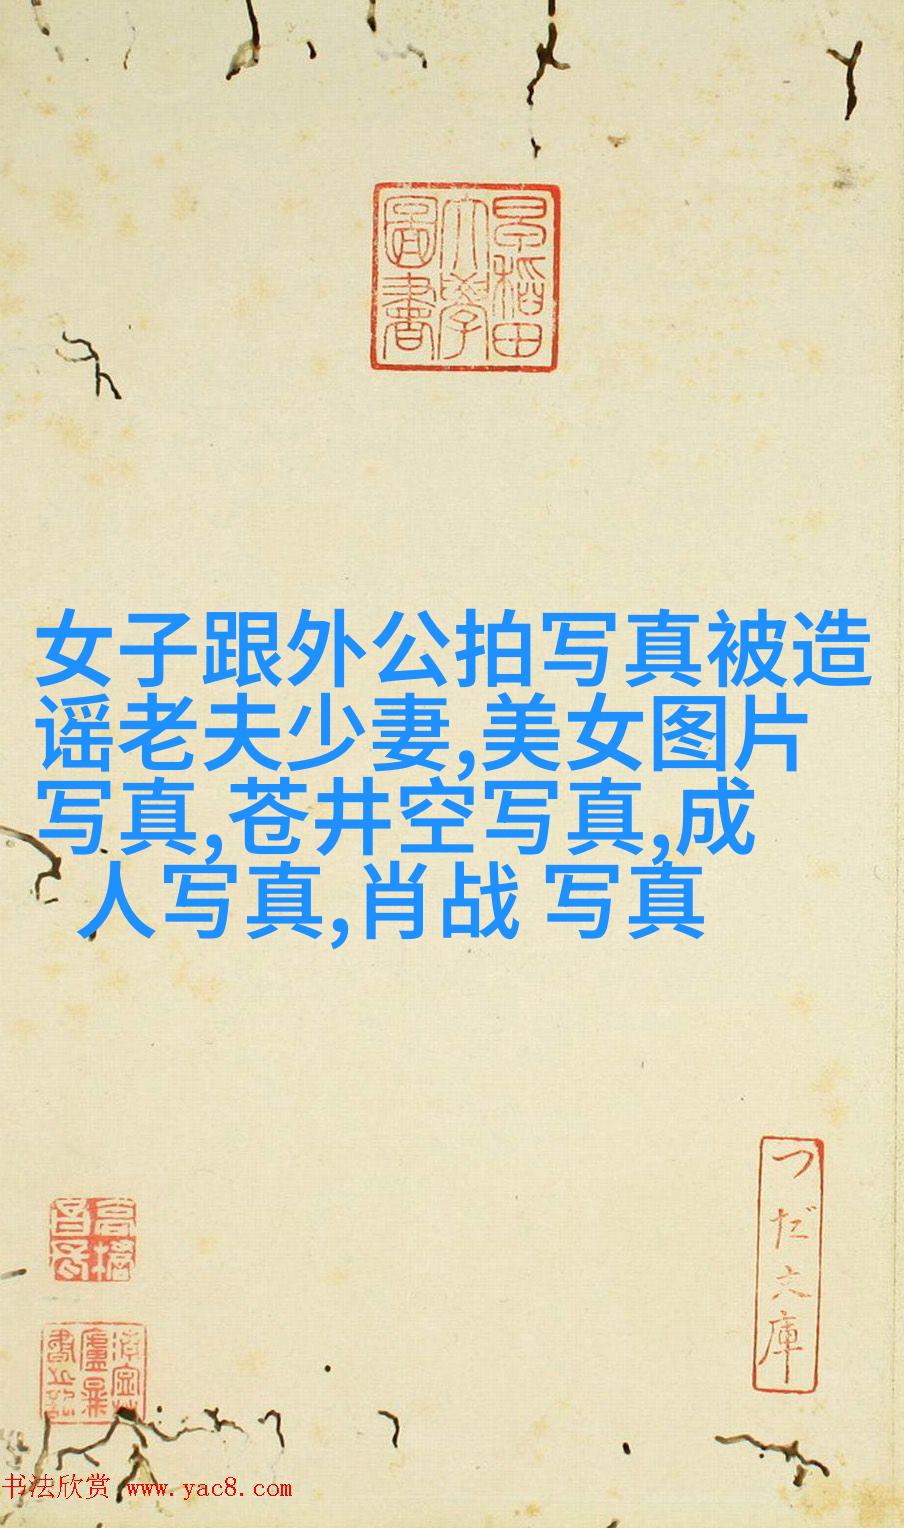 早稻田
大學
圖書
女子跟外公拍写真被造
谣老夫少妻,美女图片
写真,苍井空写真,成
人写真,肖战 写真
つだ文庫
书法欣赏 www.yac8.com